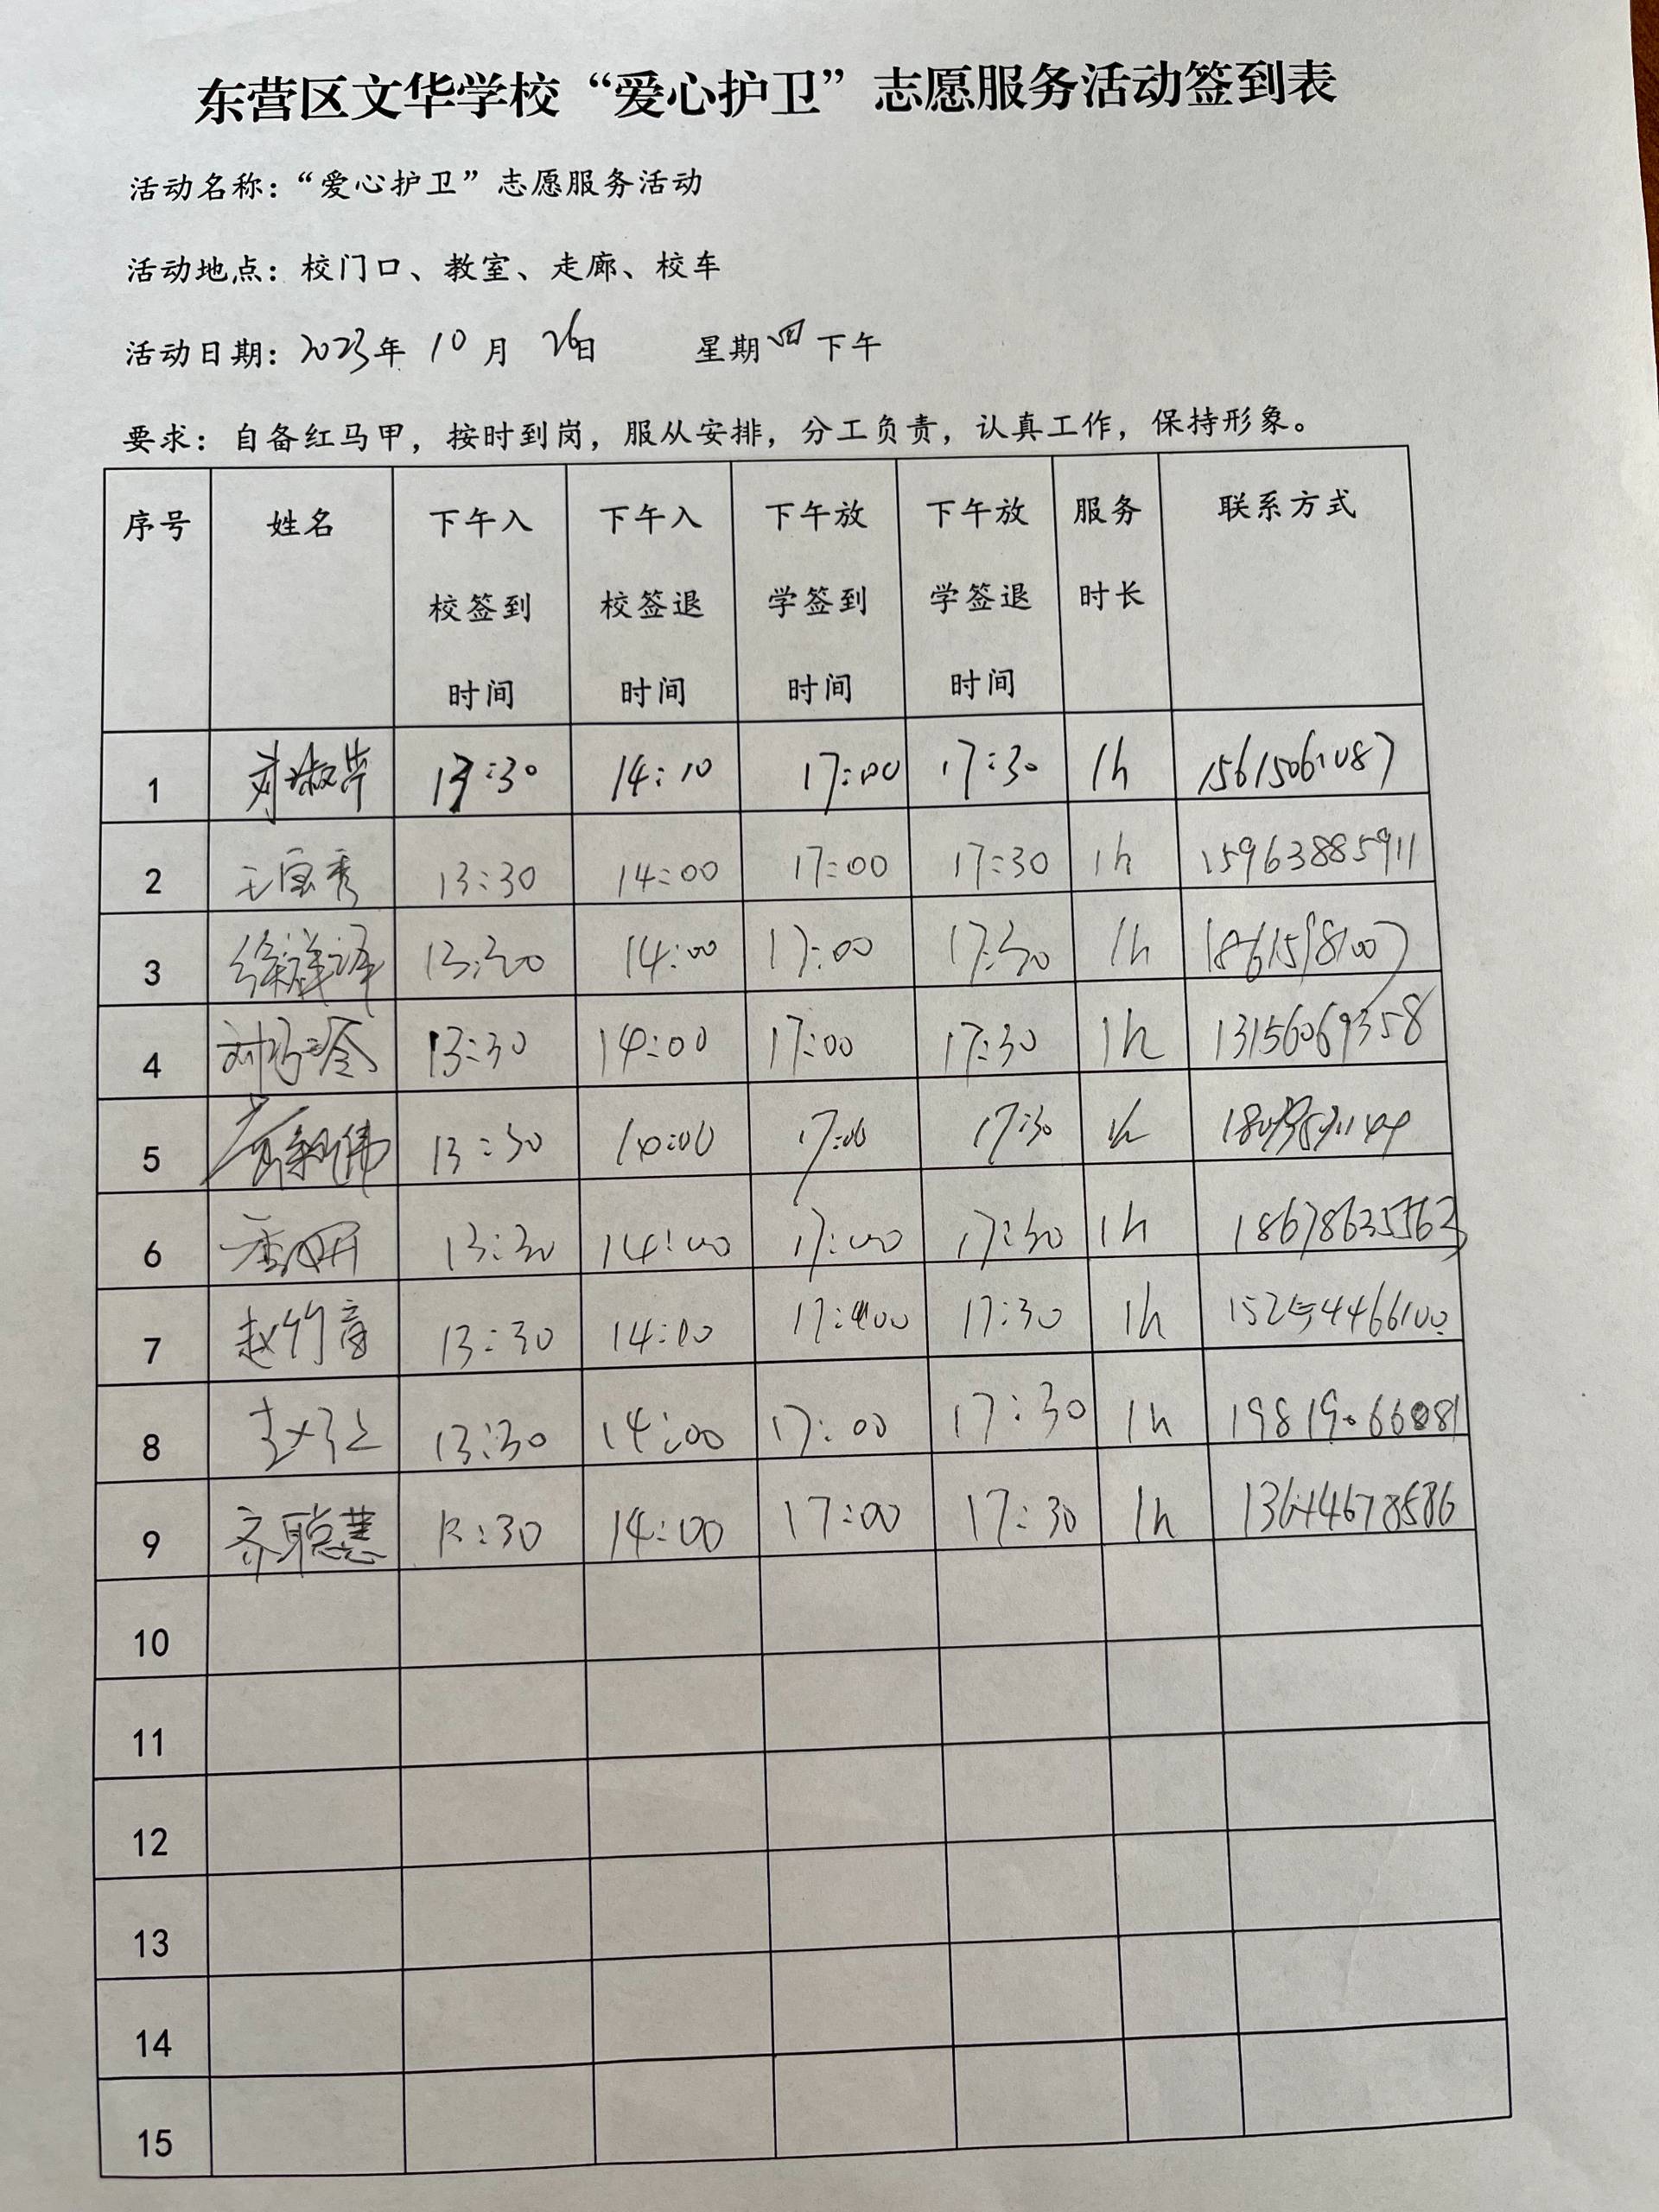 东营区文华学校“爱心护卫”志愿服务活动签到表
活动名称：“爱心护卫”志愿服务活动
活动地点：校门口、教室、走廊、校车
活动日期：2023年 10月 26日 星期四下午
要求：自备红马甲，按时到岗，服从安排，分工负责，认真工作，保持形象。
序号 姓名 下午入校签到时间 下午入校签退时间 下午放学签到时间 下午放学签退时间 服务时长 联系方式
1 13:30 14:10 17:00 17:30 1h 15615061087
2 王宝秀 13:30 14:00 17:00 17:30 1h 15963885911
3 徐祥泽 13:30 14:00 17:00 17:30 1h 18615981007
4 13:30 14:00 17:00 17:30 1h 13156069358
5 13:30 17:00 17:30 1h
6 13:30 14:00 17:00 17:30 1h 18678635563
7 赵竹音 13:30 14:00 17:00 17:30 1h
8 13:30 14:00 17:00 17:30 1h 19819066081
9 齐聪慧 13:30 14:00 17:00 17:30 1h
10
11
12
13
14
15